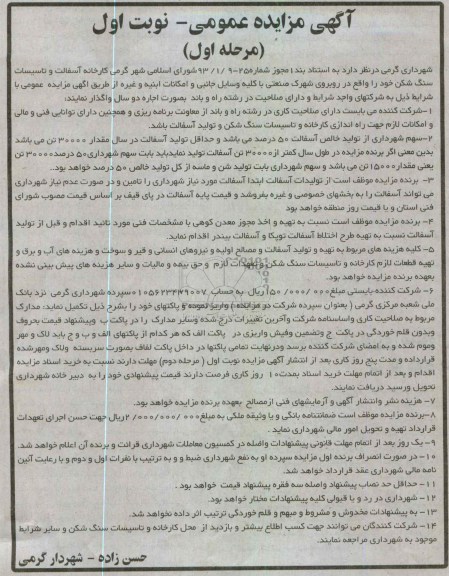 آگهی مزایده عمومی- نوبت اول
(مرحله اول)
شهرداری گرمی درنظر دارد به استناد بند۱مجوز شماره۲۵۸-۹ /۱/ ۹۳ شورای اسلامی شهر گرمی کارخانه آسفالت و تاسیسات
سنگ شکن خود را واقع در روبروی شهرک صنعتی با کلیه وسایل جانبی و امکانات ابنیه و غیره از طریق آگهی مزایده عمومی با
شرایط ذیل به شرکتهای واجد شرایط و دارای صلاحیت در رشته راه و باند بصورت اجاره دو سال واگذار نمایند:
۱-شرکت کننده می بایست دارای صلاحیت کاری در رشته راه و باند از معاونت برنامه ریزی و همچنین دارای توانایی فنی و مالی
و امکانات لازم جهت راه اندازی کارخانه و تاسیسات سنگ شکن و تولید آسفالت باشد.
۲-سهم شهرداری از تولید خالص آسفالت ۵۰ درصد می باشد و حداقل تولید آسفالت در سال مقدار ۳۰۰۰۰ تن می باشد
بدین معنی اگر برنده مزایده در طول سال کمتر از۳۰۰۰۰ تن آسفالت تولید نمایدباید بابت سهم شهرداری۵۰ درصد۳۰۰۰۰ تن
یعنی مقدار۱۵۰۰۰ تن می باشد و سهم شهرداری بابت تولید شن و ماسه از کل تولید خالص ۵۰ درصد خواهد بود..
۳- برنده مزایده موظف است از تولیدات آسفالت ابتدا آسفالت مورد نیاز شهرداری را تامین و در صورت عدم نیاز شهرداری
می تواند آسفالت را به بخشهای خصوصی و غیره بفروشد و قیمت پایه آسفالت در پای قیف بر اساس قیمت مصوب شورای
فنی استان و یا قیمت روز منطقه خواهد بود
۴- برنده مزایده موظف است نسبت به تهیه و اخذ مجوز معدن کوهی با مشخصات فنی مورد تائید اقدام و قبل از تولید
آسفالت نسبت به تهیه طرح اختلاط آسفالت توپکا و آسفالت بیندر اقدام نماید.
۵- کلیه هزینه های مربوط به تهیه و تولید آسفالت و مصالح اولیه و نیروهای انسانی و قیر و سوخت و هزینه های آب و برق و
تهیه قطعات لازم کارخانه و تاسیسات سنگ شکن لازم و حق بیمه و مالیات و سایر هزینه های پیش بینی نشده
بعهده برنده مزایده خواهد بود.
۶- شرکت کننده بایستی مبلغ۱۵۰/۰۰۰/۰۰۰ریال به حساب ۰۱۰۵۶۲۳۴۷۹۰۰۷ سپرده شهرداری گرمی نزد بانک
ملی شعبه مرکزی گرمی ( بعنوان سپرده شرکت در مزایده) واریز نموده و پاکتهای خود را بشرح ذیل تکمیل نماید: مدارک
مربوط به صلاحیت کاری واساسنامه شرکت وآخرین تغییرات درج شده وسایر مدارک را در پاکت ب وپیشنهاد قیمت بحروف
وبدون قلم خوردگی در پاکت ج وتضمین وفیش واریزی در پاکت الف که هر کدام از پاکتهای الف و ب و ج باید لاک و مهر
وموم شده و به امضای شرکت کننده برسد ودرنهایت تمامی پاکتها در داخل پاکت لفاف بصورت سربسته ولاک ومهرشده
قرارداده و مدت پنج روز کاری بعد از انتشار آگهی مزایده نوبت اول ( مرحله دوم) مهلت دارند نسبت به خرید اسناد مزایده
اقدام و بعد از اتمام مهلت خرید اسناد بمدت۱۰ روز کاری فرصت دارند قیمت پیشنهادی خود را به دبیر خانه شهرداری
تحویل ورسید دریافت نمایند.
۷- هزینه نشر وانتشار آگهی و آزمایشهای فنی ازمصالح بعهده برنده مزایده خواهد بود.
۸-برنده مزایده موظف است ضمانتنامه بانکی و یا وثیقه ملکی به مبلغ۲/۰۰۰/۰۰۰/۰۰۰ریال جهت حسن اجرای تعهدات
قرارداد تهیه و تحویل امور مالی شهرداری نماید .
۹- یک روز بعد از اتمام مهلت قانونی پیشنهادات واصله در کمسیون معاملات شهرداری قرائت و برنده آن اعلام خواهد شد.
۱۰- در صورت انصراف برنده اول مزایده سپرده او به نفع شهرداری ضبط و و به ترتیب با نفرات اول و دوم و با رعایت آئین
نامه مالی شهرداری عقد قرارداد خواهد شد.
۱۱- حداقل حد نصاب پیشنهاد واصله سه فقره پیشنهاد قیمت خواهد بود .
۱۲- شهرداری در رد و یا قبولی کلیه پیشنهادات مختار خواهد بود.
۱۳- به پیشنهادات مخدوش و مشروط و مبهم و قلم خوردگی ترتیب اثر داده نخواهد شد.
۱۴- شرکت کنندگان می توانند جهت کسب اطلاع بیشتر و بازدید از محل کارخانه و تاسیسات سنگ شکن و سایر شرایط
موجود به شهرداری مراجعه نمایند.
حسن زاده - شهردار گرمی